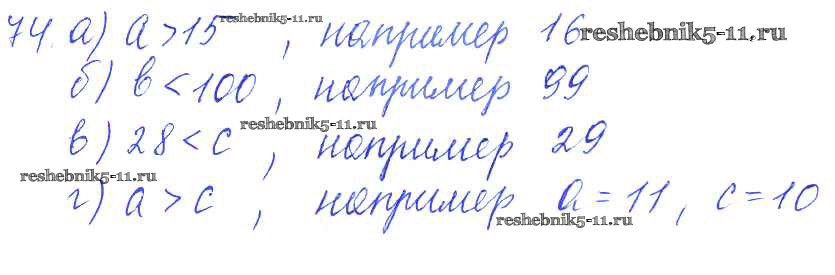 74. а) a > 15, например 16
б) b < 100, например 99
в) 28 < c, например 29
г) a > c, например a = 11, c = 10
reshebnik5-11.ru
reshebnik5-11.ru
reshebnik5-11.ru
reshebnik5-11.ru
reshebnik5-11.ru